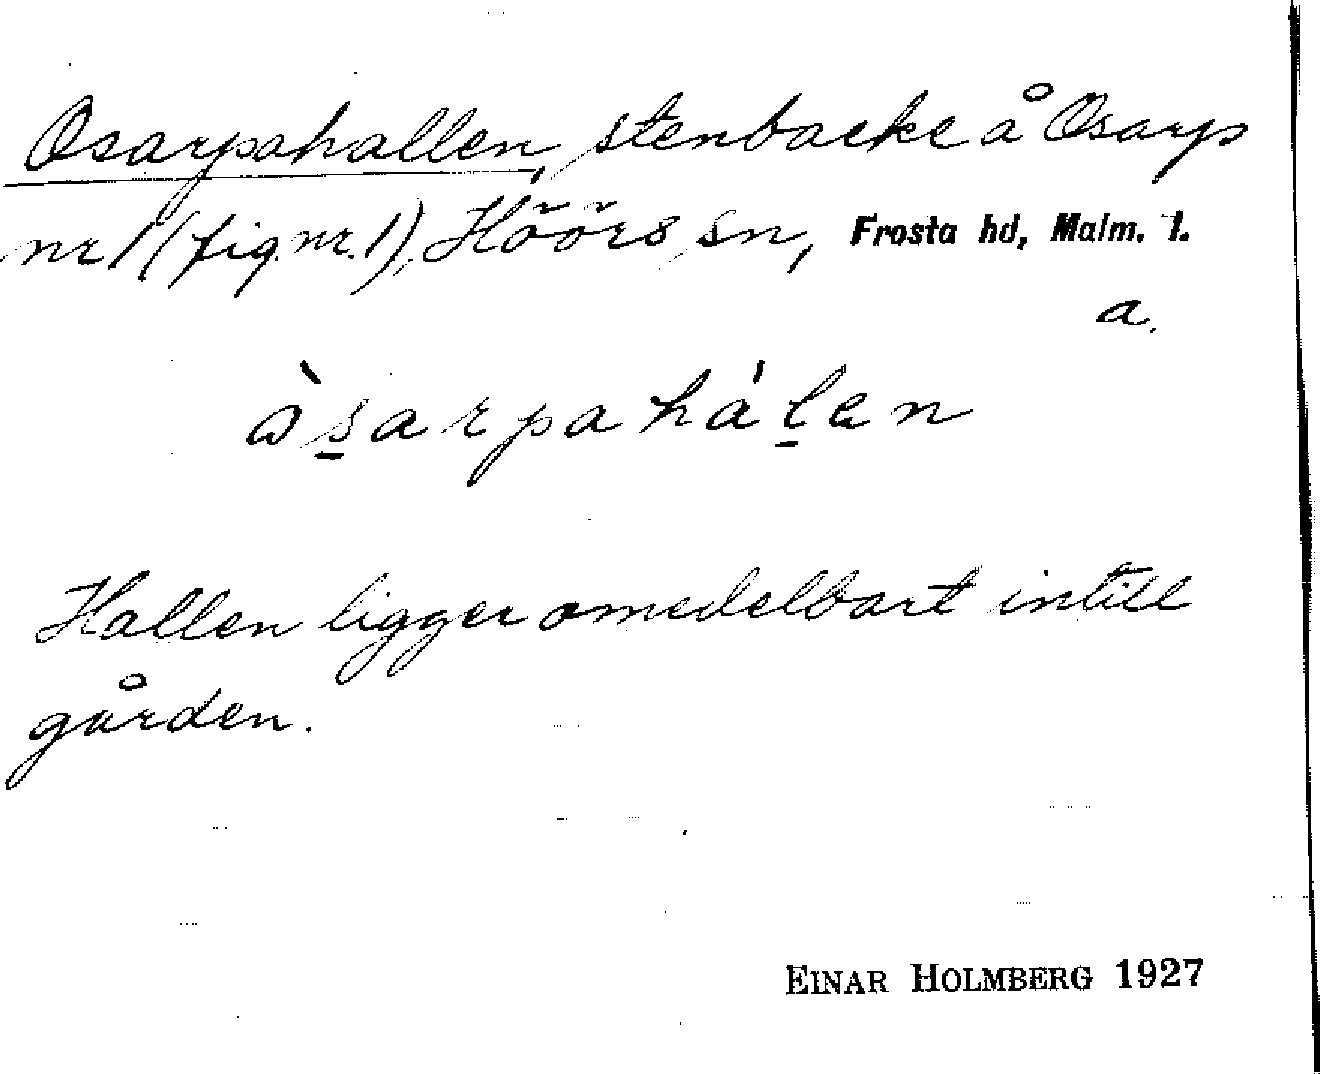 Osarpahallen, stenbacke å Osarp
nr 1 (fig. nr. 1), Höörs sn, Frosta hd, Malm. l.
a.
ὰs̱arpaháḻen
Hallen ligger omedelbart intill
gården.
EINAR HOLMBERG 1927